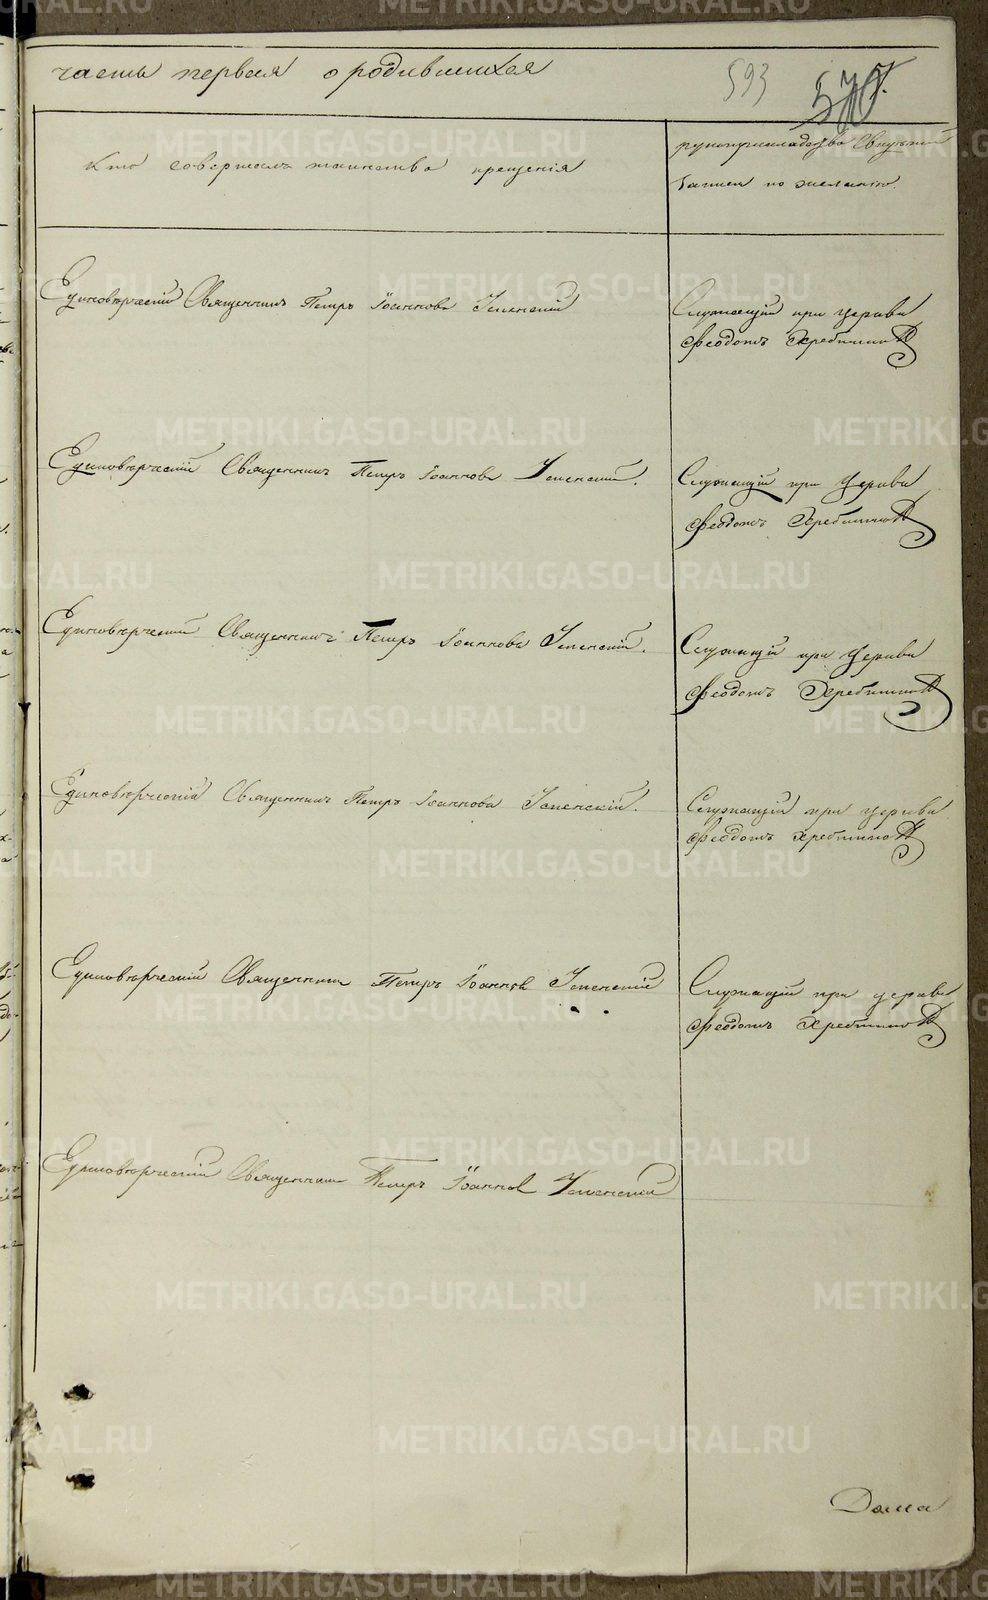 часть первая о родившихся
593
570
Кто совершалъ таинство крещенія
рукоприкладство свидѣтелей
записи по желанію.
Единовѣрческій Священникъ Петръ Іоанновъ Успенскій
Служащій при церкви
Феодотъ Хребтиков
Единовѣрческій Священникъ Петръ Іоанновъ Успенскій.
Служащій при церкви
Феодотъ Хребтиков
Единовѣрческій Священникъ Петръ Іоанновъ Успенскій.
Служащій при церкви
Феодотъ Хребтиков
Единовѣрческій Священникъ Петръ Іоанновъ Успенскій.
Служащій при церкви
Феодотъ Хребтиков
Единовѣрческій Священникъ Петръ Іоаннов Успенскій
Служащій при церкви
Феодотъ Хребтиков
Единовѣрческій Священникъ Петръ Іоаннов Успенскій
METRIKI.GASO-URAL.RU